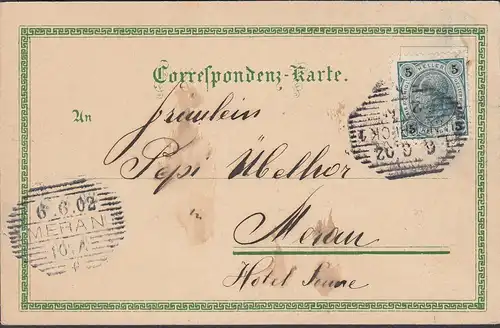 5 HELLER 5
5 5
Correspondenz-Karte.
An Fräulein
Pepi Übelhor
Meran
Hotel Sonne
6.6.02
MERAN
10.A
6.6.02